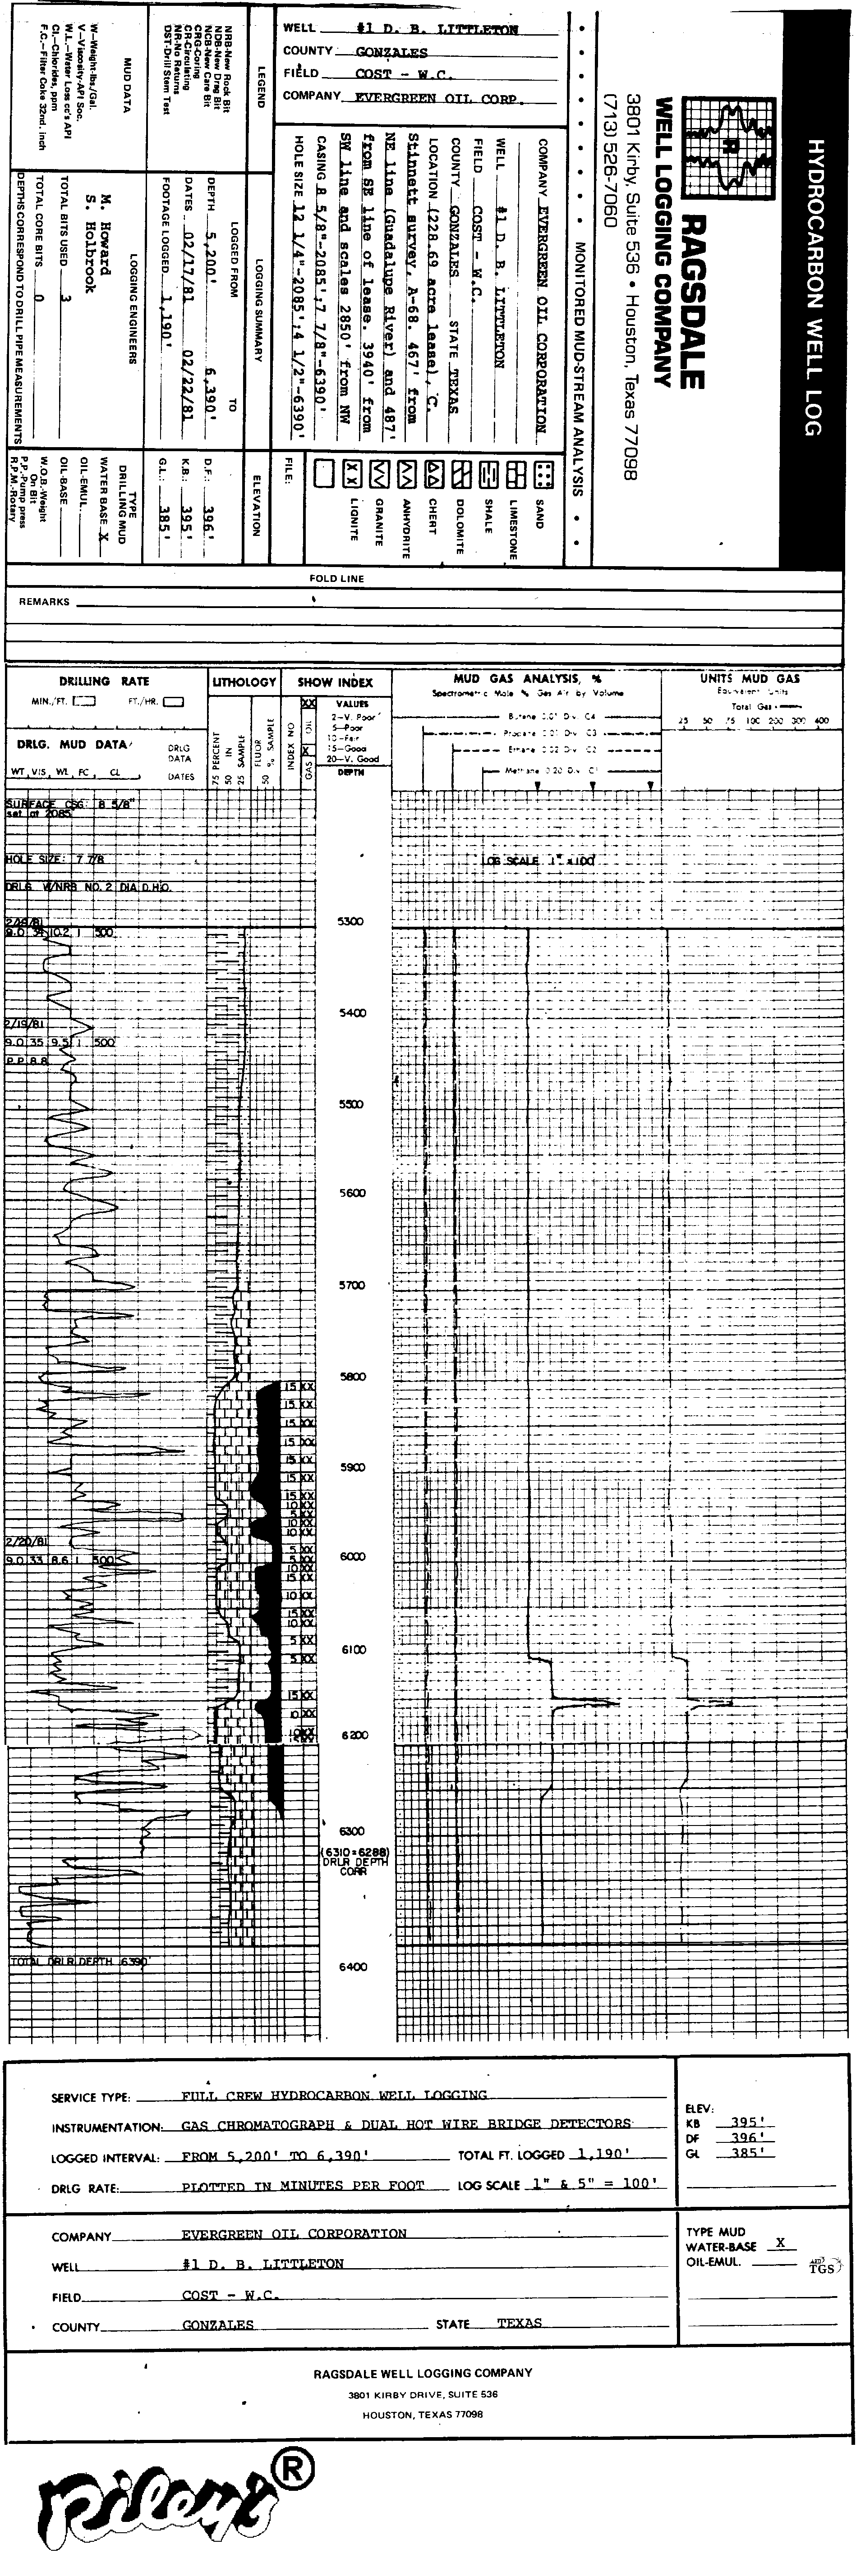 HYDROCARBON WELL LOG
R
RAGSDALE
WELL LOGGING COMPANY
3801 Kirby, Suite 536 • Houston, Texas 77098
(713) 526-7060
• • • • • • • • MONITORED MUD-STREAM ANALYSIS • • •
WELL #1 D. B. LITTLETON
COUNTY GONZALES
FIELD COST - W.C.
COMPANY EVERGREEN OIL CORP.
COMPANY EVERGREEN OIL CORPORATION
WELL #1 D. B. LITTLETON
FIELD COST - W.C.
COUNTY GONZALES STATE TEXAS
LOCATION (228.69 acre lease), C.
Stinnett survey, A-68. 467' from
NE line (Guadalupe River) and 487'
from SE line of lease. 3940' from
SW line and scales 2850' from NW
CASING 8 5/8"-2085';7 7/8"-6390'
HOLE SIZE 12 1/4"-2085';4 1/2"-6390'
SAND
LIMESTONE
SHALE
DOLOMITE
CHERT
ANHYDRITE
GRANITE
LIGNITE
FILE:
LEGEND
NRB-New Rock Bit
NDB-New Drag Bit
NCB-New Core Bit
CRG-Coring
CR-Circulating
NR-No Returns
DST-Drill Stem Test
MUD DATA
W-Weight-lbs./Gal.
V-Viscosity-API Soc.
W.L.-Water Loss cc's API
CL-Chlorides, ppm
F.C.-Filter Cake 32nd. inch
LOGGING SUMMARY
LOGGED FROM TO
DEPTH 5,200' 6,390'
DATES 02/17/81 02/22/81
FOOTAGE LOGGED 1,190'
LOGGING ENGINEERS
M. Howard
S. Holbrook
TOTAL BITS USED 3
TOTAL CORE BITS 0
DEPTHS CORRESPOND TO DRILL PIPE MEASUREMENTS
ELEVATION
D.F.: 396'
K.B.: 395'
G.L.: 385'
TYPE
DRILLING MUD
WATER BASE X
OIL-EMUL.
OIL-BASE
W.O.B.-Weight
On Bit
P.P.-Pump press
R.P.M.-Rotary
FOLD LINE
REMARKS
DRILLING RATE
MIN./FT. FT./HR.
DRLG. MUD DATA
DRLG
DATA
WT, VIS, WL, FC, CL DATES
LITHOLOGY
75 PERCENT
50 IN
25 SAMPLE
FLUOR
50 % SAMPLE
SHOW INDEX
INDEX NO.
XX OIL
X GAS
VALUES
2-V. Poor
5-Poor
10-Fair
15-Good
20-V. Good
DEPTH
MUD GAS ANALYSIS, %
Spectrometric Mole % Gas Air by Volume
Butane 0.01 Div. C4
Propane 0.01 Div. C3
Ethane 0.02 Div. C2
Methane 0.20 Div. C1
UNITS MUD GAS
Equivalent Units
Total Gas
25 50 75 100 200 300 400
SURFACE CSG: 8 5/8"
set at 2085'
HOLE SIZE: 7 7/8
LOG SCALE 1" = 100'
DRLG W/NRB NO. 2 DIA D.H.O.
5300
9.0 34 10.2 1 500
5400
2/19/81
9.0 35 9.5 1 500
P.P. 8.8
5500
5600
5700
5800
15 XX
15 XX
15 XX
15 XX
15 XX
5900
15 XX
15 XX
10 XX
5 XX
10 XX
10 XX
2/20/81
5 XX
6000
9.0 33 8.6 1 500
5 XX
10 XX
15 XX
10 XX
15 XX
10 XX
5 XX
6100
5 XX
15 XX
10 XX
6200
10 XX
6300
(6310=6288)
DRLR DEPTH
CORR
TOTAL DRLR DEPTH 6390'
6400
SERVICE TYPE: FULL CREW HYDROCARBON WELL LOGGING
INSTRUMENTATION: GAS CHROMATOGRAPH & DUAL HOT WIRE BRIDGE DETECTORS
LOGGED INTERVAL: FROM 5,200' TO 6,390' TOTAL FT. LOGGED 1,190'
DRLG RATE: PLOTTED IN MINUTES PER FOOT LOG SCALE 1" & 5" = 100'
ELEV:
KB 395'
DF 396'
GL 385'
COMPANY EVERGREEN OIL CORPORATION
WELL #1 D. B. LITTLETON
FIELD COST - W.C.
COUNTY GONZALES STATE TEXAS
TYPE MUD
WATER-BASE X
OIL-EMUL.
TGS
RAGSDALE WELL LOGGING COMPANY
3801 KIRBY DRIVE, SUITE 536
HOUSTON, TEXAS 77098
Riley's®